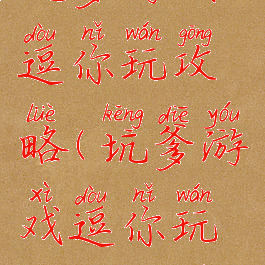 dòu nǐ wán gōng
逗你玩攻
lüè kēng diē yóu
略(坑爹游
xì dòu nǐ wán
戏逗你玩